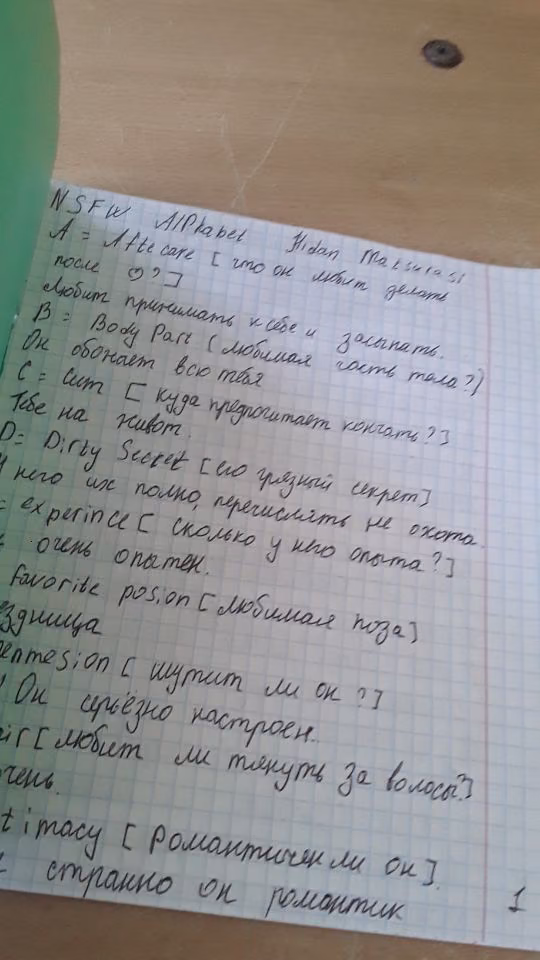 NSFW Alphabet Hidan Matsurasi
A = Afte care [что он любит делать
после ?]
Любит принимать к себе и засыпать.
B = Body Part [любимая часть тела?]
Он обонает всю тебя
C = Cum [куда предпочитает кончать?]
Тебе на живот.
D = Dirty Secret [его грязный секрет]
У него их полно, перечислять не охота.
= experince [сколько у него опыта?]
очень опытен.
Favorite posion [любимая поза]
ездница
enmesion [шутит ли он?]
Он серьёзно настроен.
air [любит ли тянуть за волосы?]
чень.
timacy [Романтичен ли он].
странно он романтик
1